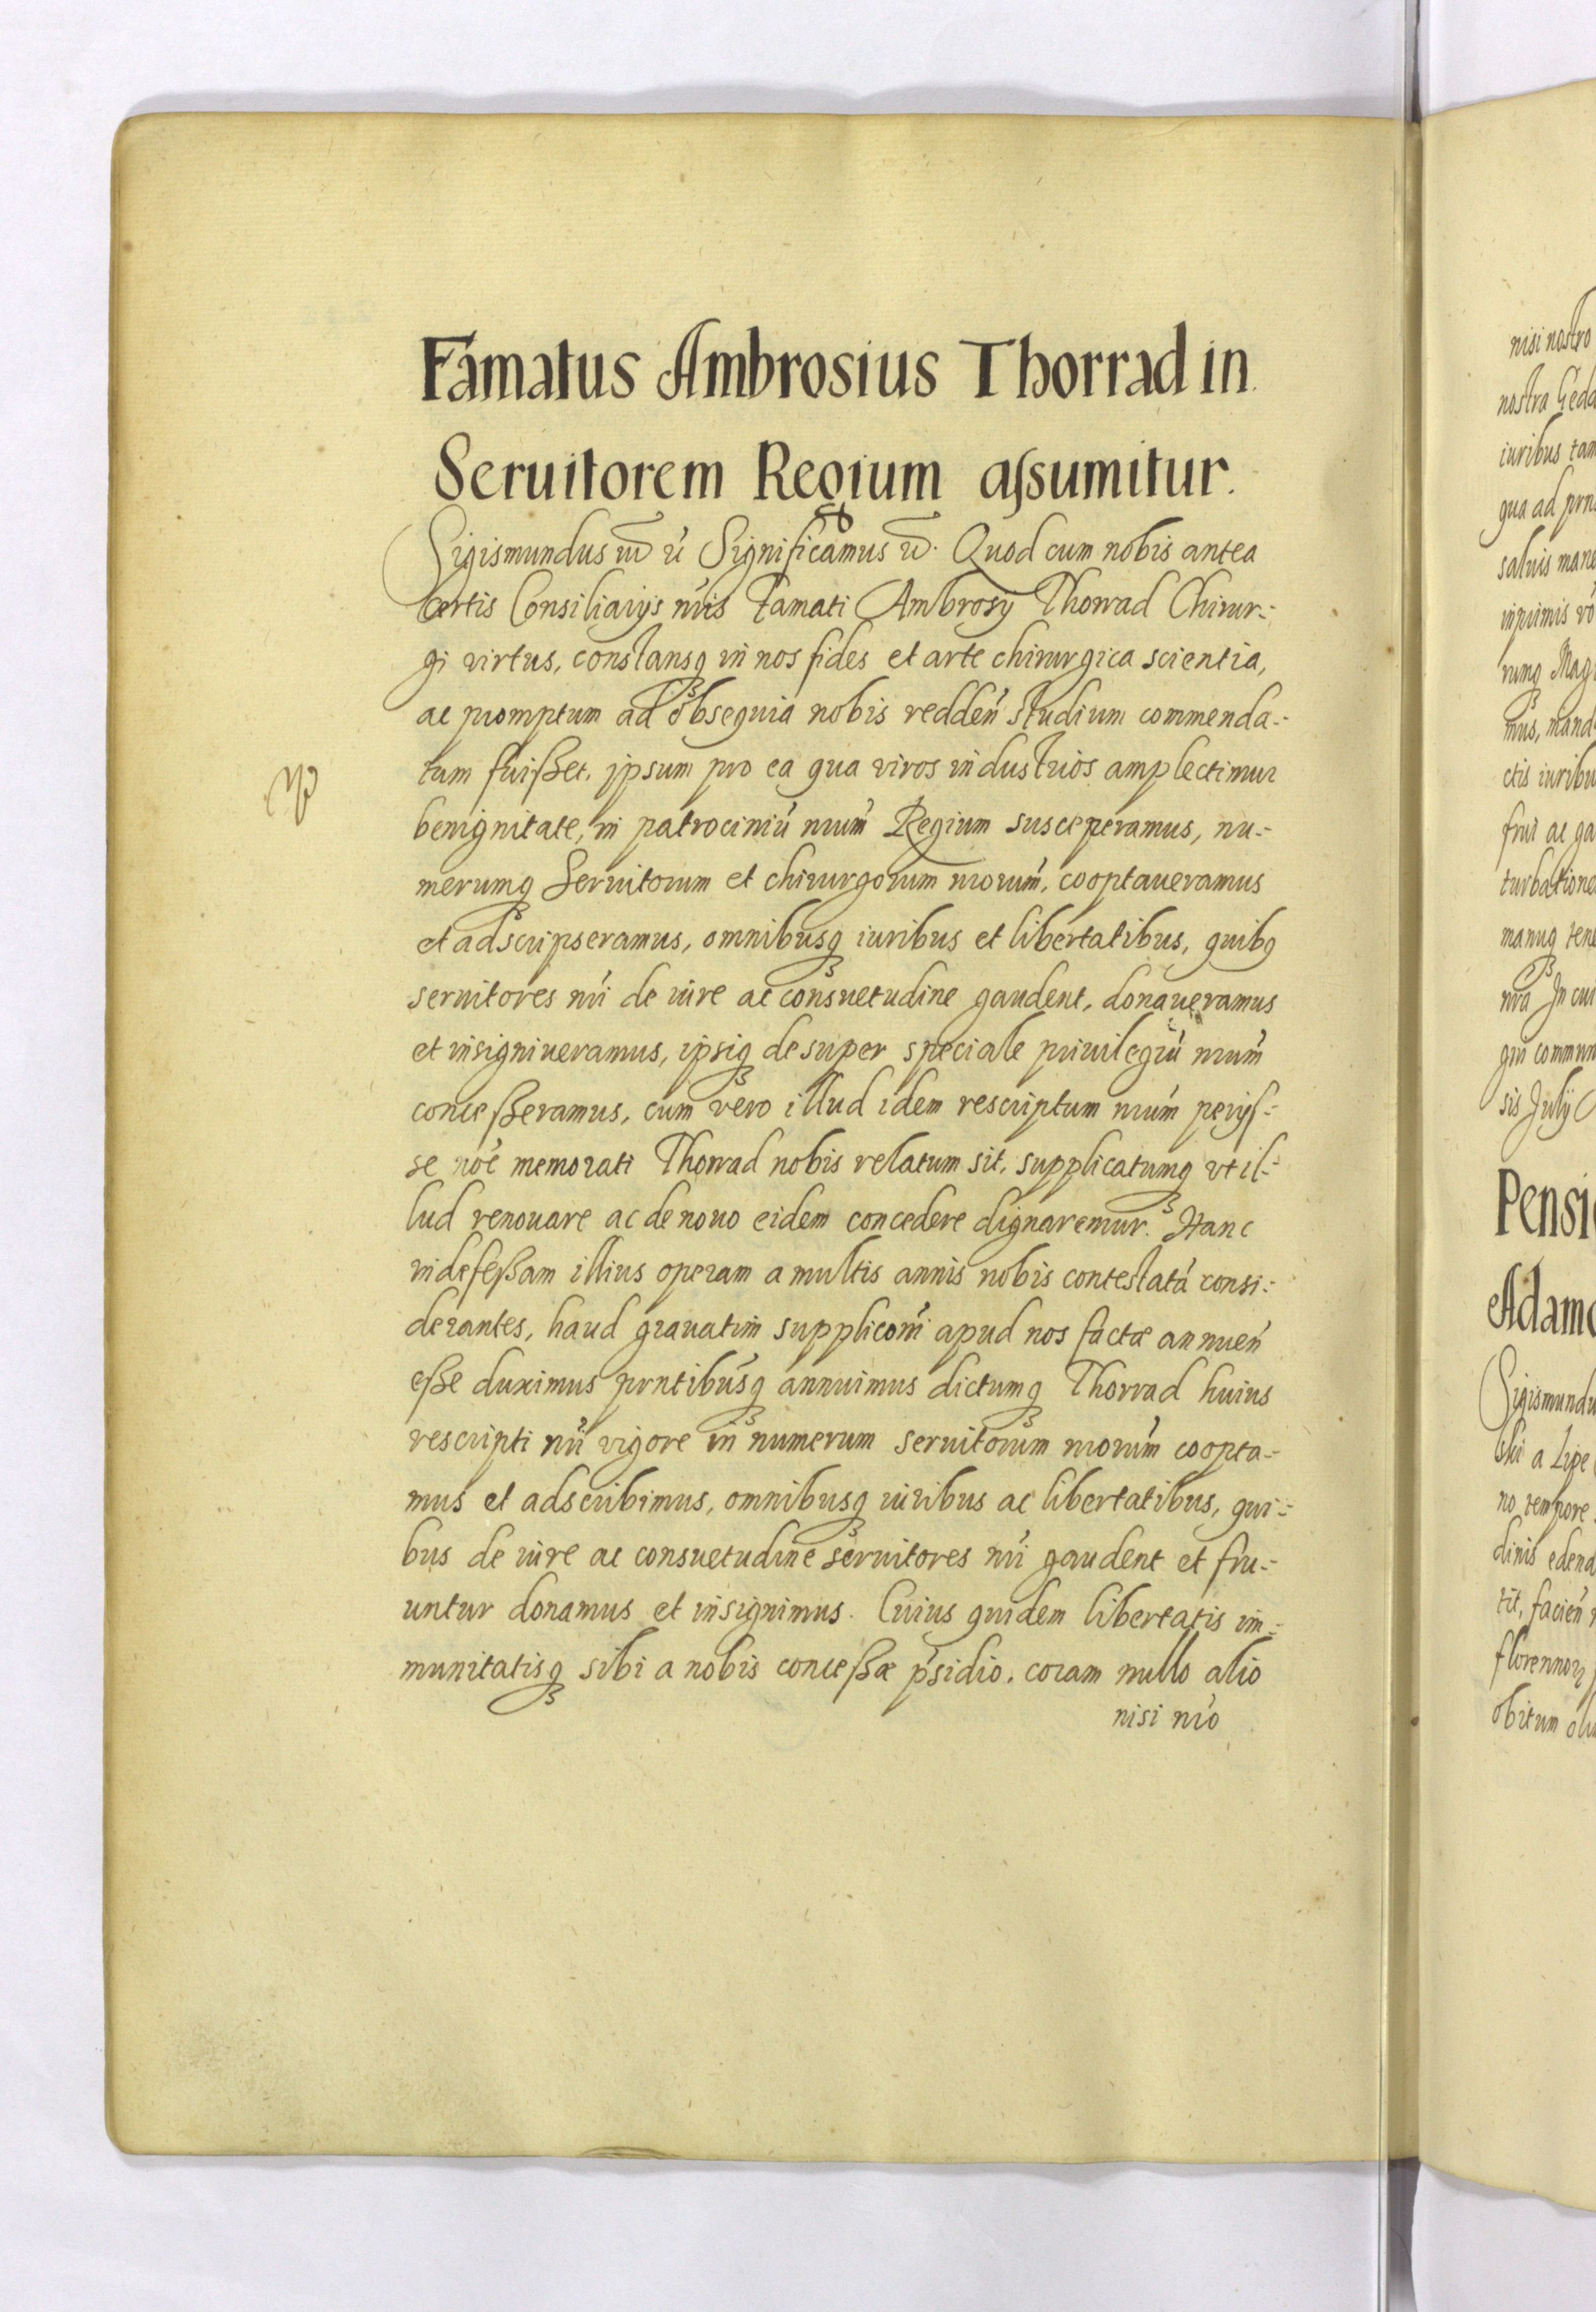 Famatus Ambrosius Thorrad in
Seruitorem Regium aſsumitur.
Sigismundus Significamus Quod cum nobis antea
certis Consiliarijs nris Famati Ambrosy Thorrad Chirur-
gi virtus, constansq in nos fides et arte chirurgica scientia,
ac promptum ad obsequia nobis redden studium commenda-
tum fuißet, ipsum pro ea qua viros industrios amplectimur
benignitate, in patrociniū nrum Regium susceperamus, nu-
merumq Seruitorum et chirurgorum nrorum, cooptaueramus
et adscripseramus, omnibusq iuribus et libertatibus, quibq
seruitores nri de iure ac consuetudine gaudent, donaueramus
et insigniueramus, ipsiq desuper speciale priuilegiū nrum
conceßeramus, cum vero illud idem rescriptum nrum perijſ-
se noe memorati Thorrad nobis relatum sit, supplicatumq vt il-
lud renouare ac denouo eidem concedere dignaremur. Hanc
indefeßam illius operam a multis annis nobis contestatā consi-
derantes, haud grauatim suppliconi apud nos factæ annuen
eße duximus prntibusq annuimus dictumq Thorrad huius
rescripti nri vigore in numerum seruitorum nrorum coopta-
mus et adscribimus, omnibusq iuribus ac libertatibus, qui-
bus de iure ac consuetudine seruitores nri gaudent et fru-
untur donamus et insignimus. Cuius quidem libertatis im-
munitatisq sibi a nobis conceßæ psidio, coram nullo alio
nisi nro
nisi nostro
nostra
iuribus
qua ad
saluis
inprimis
rumq
mus,
ctis
frui ac
manuq
nra In
sis July
Pensi
Adamo
Sigismundu
a Lipe
no tempore
dinis
facien
obitum